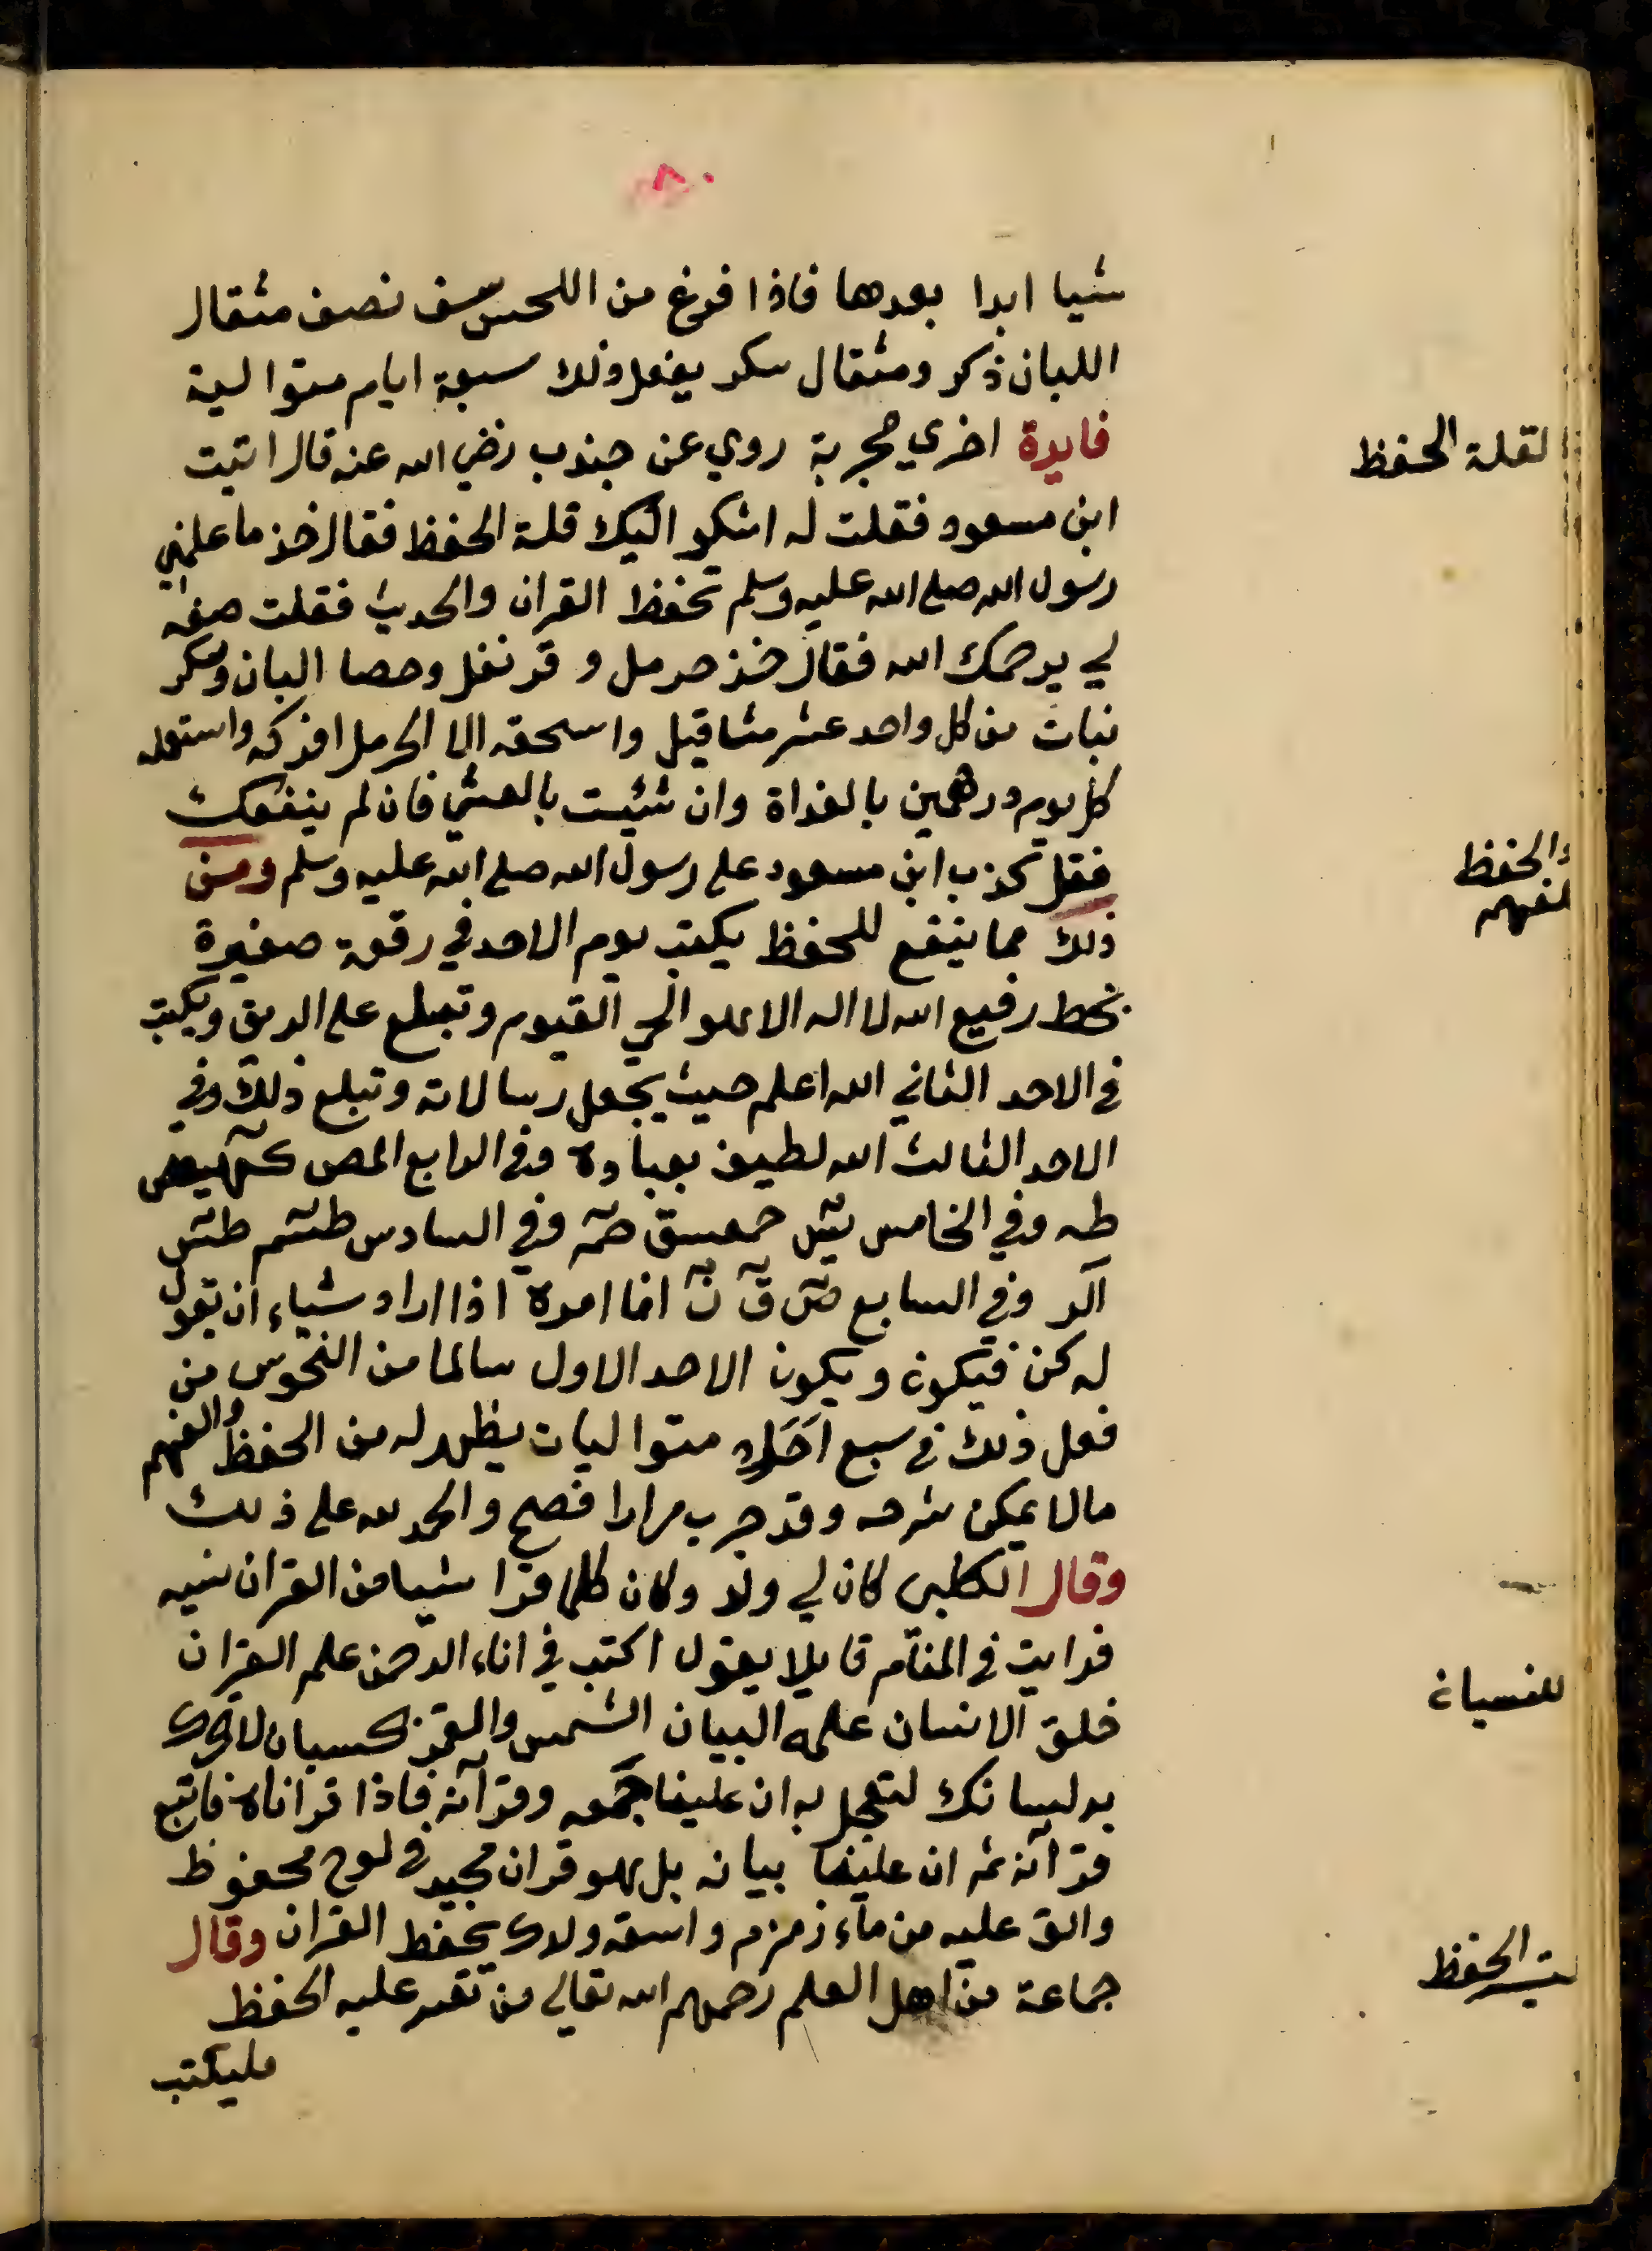 ٨٠
شيا ابدا بعدها فاذا فرغ من اللحس سف نصف مثقال
اللبان ذكر ومثقال سكر يفعل ذلك سبعة ايام متوالية
فايدة اخري مجربة روي عن جندب رضي الله عنه قال اتيت
لقلة الحفظ
ابن مسعود فقلت له اشكو اليك قلة الحفظ فقال خذ ما علمني
رسول الله صلى الله عليه وسلم تحفظ القران والحديث فقلت صفه
لي يرحمك الله فقال خذ حرمل و قرنفل وحصا البان وسكر
نبات من كل واحد عشر مثاقيل واسحقه الا الحرمل افركه واستعمله
كل يوم درهمين بالغداة وان شئيت بالعشي فان لم ينفعك
فقل كذب ابن مسعود على رسول الله صلى الله عليه وسلم ومن
والحفظ
لفهم
ذلك مما ينفع للحفظ يكتب يوم الاحد في رقعة صغيرة
بخط رفيع الله لا اله الا هو الحي القيوم وتبلع على الريق ويكتب
في الاحد الثاني الله اعلم حيث يجعل رسالاته وتبلع ذلك وفي
الاحد الثالث الله لطيف بعباده وفي الرابع المص كهيعص
طه وفي الخامس يس حمعسق حم وفي السادس طسم طس
الر وفي السابع ص ق ن انما امره اذا اراد شياء ان يقول
له كن فيكون ويكون الاحد الاول سالما من النحوس من
فعل ذلك في سبع احَدٍ متواليات يظهر له من الحفظ والفهم
مالا يمكن شرحه وقد جرب مرارا فصح والحمد لله على ذلك
وقال الكلبي كان لي ولد وكان كلما قرا شيا من القران نسيه
فرايت في المنام قايلا يقول اكتب في اناء الرحمن علم القران
للنسيان
خلق الانسان علمه البيان الشمس والقمر بحسبان لا تحرك
به لسانك لتعجل به ان علينا جمعه وقرآنه فاذا قراناه فاتبع
قرآنه ثم ان علينا بيانه بل هو قران مجيد في لوح محفوظ
والق عليه من ماء زمزم واسقه ولدك يحفظ القران وقال
الحفظ
جماعة من اهل العلم رحمهم الله تعالي من تعسر عليه الحفظ
فليكتب